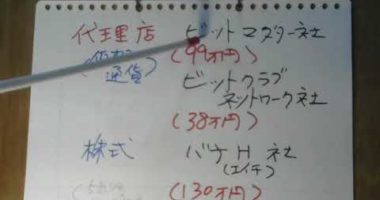 代理店 ビットマスター社
(仮想通貨) (99万円)
ビットクラブ
ネットワーク社
(38万円)
株式 バナH社
(エイチ)
(130万円)